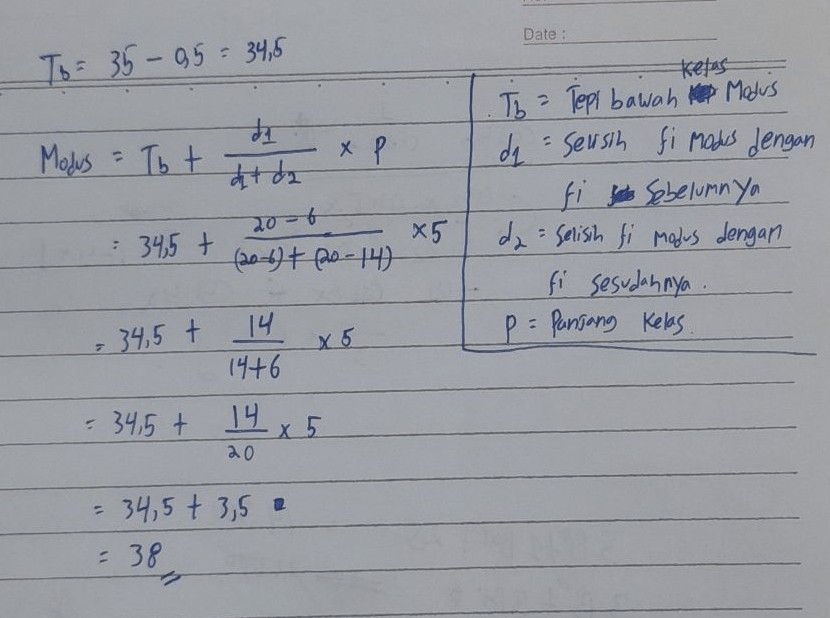 Date :
Tb = 35 - 0,5 = 34,5
Modus = Tb + d1 / (d1 + d2) × p
= 34,5 + 20 - 6 / (20-6) + (20-14) × 5
= 34,5 + 14 / 14+6 × 5
= 34,5 + 14 / 20 × 5
= 34,5 + 3,5
= 38
Tb = Tepi bawah Kelas Modus
d1 = Selisih fi Modus dengan
fi Sebelumnya
d2 = Selisih fi Modus dengan
fi sesudahnya.
P = Panjang Kelas.